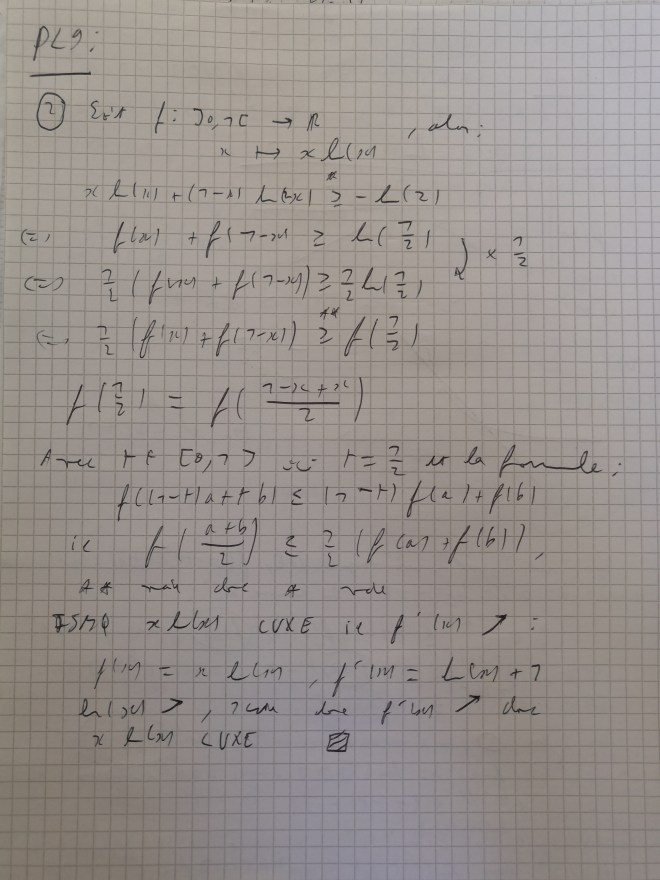 PL9:
② Soit f: ]0,1[ → ℝ , alors:
x ↦ x ln(x)
x ln(x) + (1-x) ln(1-x) ≥* - ln(2)
(=) f(x) + f(1-x) ≥ ln(1/2)
(=) 1/2 (f(x) + f(1-x)) ≥ 1/2 ln(1/2) ) × 1/2
(=) 1/2 (f(x) + f(1-x)) ≥** f(1/2)
f(1/2) = f((1-x+x)/2)
Avec t ∈ [0,1] ici t = 1/2 et la formule:
f((1-t)a+tb) ≤ (1-t) f(a) + f(b)
ie f((a+b)/2) ≤ 1/2 (f(a) + f(b)),
** vrai donc *
ISMQ x ln(x) CVXE ie f'(x) ↗ :
f(x) = x ln(x), f'(x) = ln(x) + 1
ln(x) ↗, donc f'(x) ↗ donc
x ln(x) CVXE